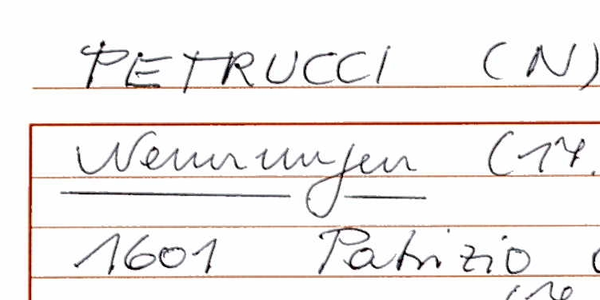 PETRUCCI (N)
Nennungen (17.
1601 Patrizio